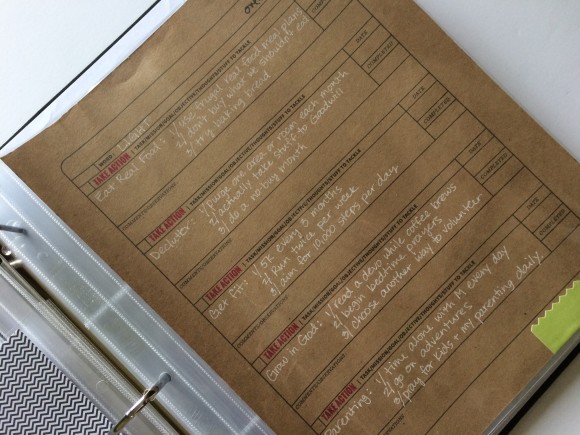 one
WORD: LIGHT
TAKE ACTION | TASK/MISSION/GOAL/OBJECTIVE/THOUGHTS/STUFF TO TACKLE
DATE
COMPLETED
Eat Real Food: 1/ use frugal real food meal plans
2/ don't buy what we shouldn't eat
3/ try baking bread
COMMENTS/OBSERVATIONS
TAKE ACTION | TASK/MISSION/GOAL/OBJECTIVE/THOUGHTS/STUFF TO TACKLE
DATE
COMPLETED
Declutter: 1/ purge one area or room each month
2/ actually take stuff to Goodwill
3/ do a no-buy month
COMMENTS/OBSERVATIONS
TAKE ACTION | TASK/MISSION/GOAL/OBJECTIVE/THOUGHTS/STUFF TO TACKLE
DATE
COMPLETED
Get Fit: 1/ 5K every 3 months
2/ Run twice per week
3/ aim for 10,000 steps per day
COMMENTS/OBSERVATIONS
TAKE ACTION | TASK/MISSION/GOAL/OBJECTIVE/THOUGHTS/STUFF TO TACKLE
DATE
COMPLETED
Grow in God: 1/ read a devo while coffee brews
2/ begin bedtime prayers
3/ choose another way to volunteer
COMMENTS/OBSERVATIONS
TAKE ACTION | TASK/MISSION/GOAL/OBJECTIVE/THOUGHTS/STUFF TO TACKLE
DATE
COMPLETED
Parenting: 1/ time alone with M every day
2/ go on adventures
3/ pray for kids + my parenting daily